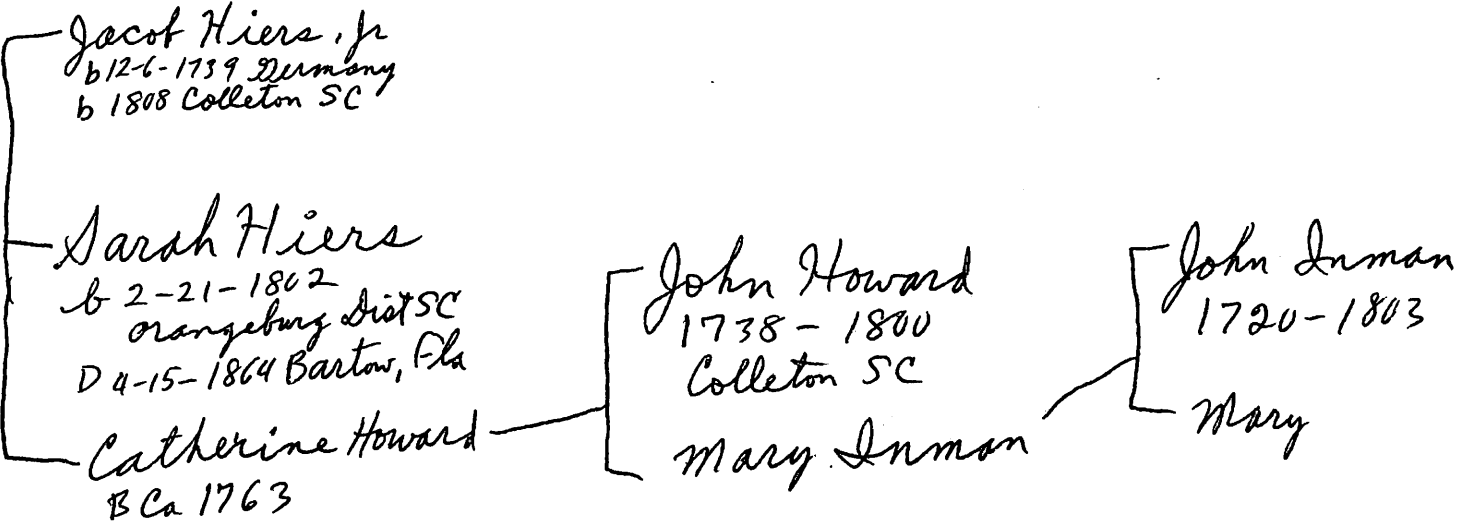 Jacob Hiers, Jr
b 12-6-1739 Germany
b 1808 Colleton SC
Sarah Hiers
b 2-21-1802
Orangeburg Dist SC
D 4-15-1864 Bartow, Fla
Catherine Howard
B Ca 1763
John Howard
1738-1800
Colleton SC
Mary Inman
John Inman
1720-1803
Mary